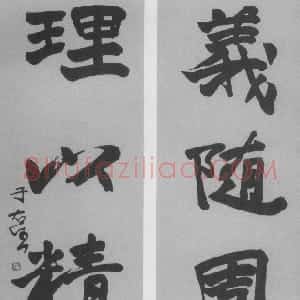 義隨周
理以精
于右任
Shufaziliao.COM